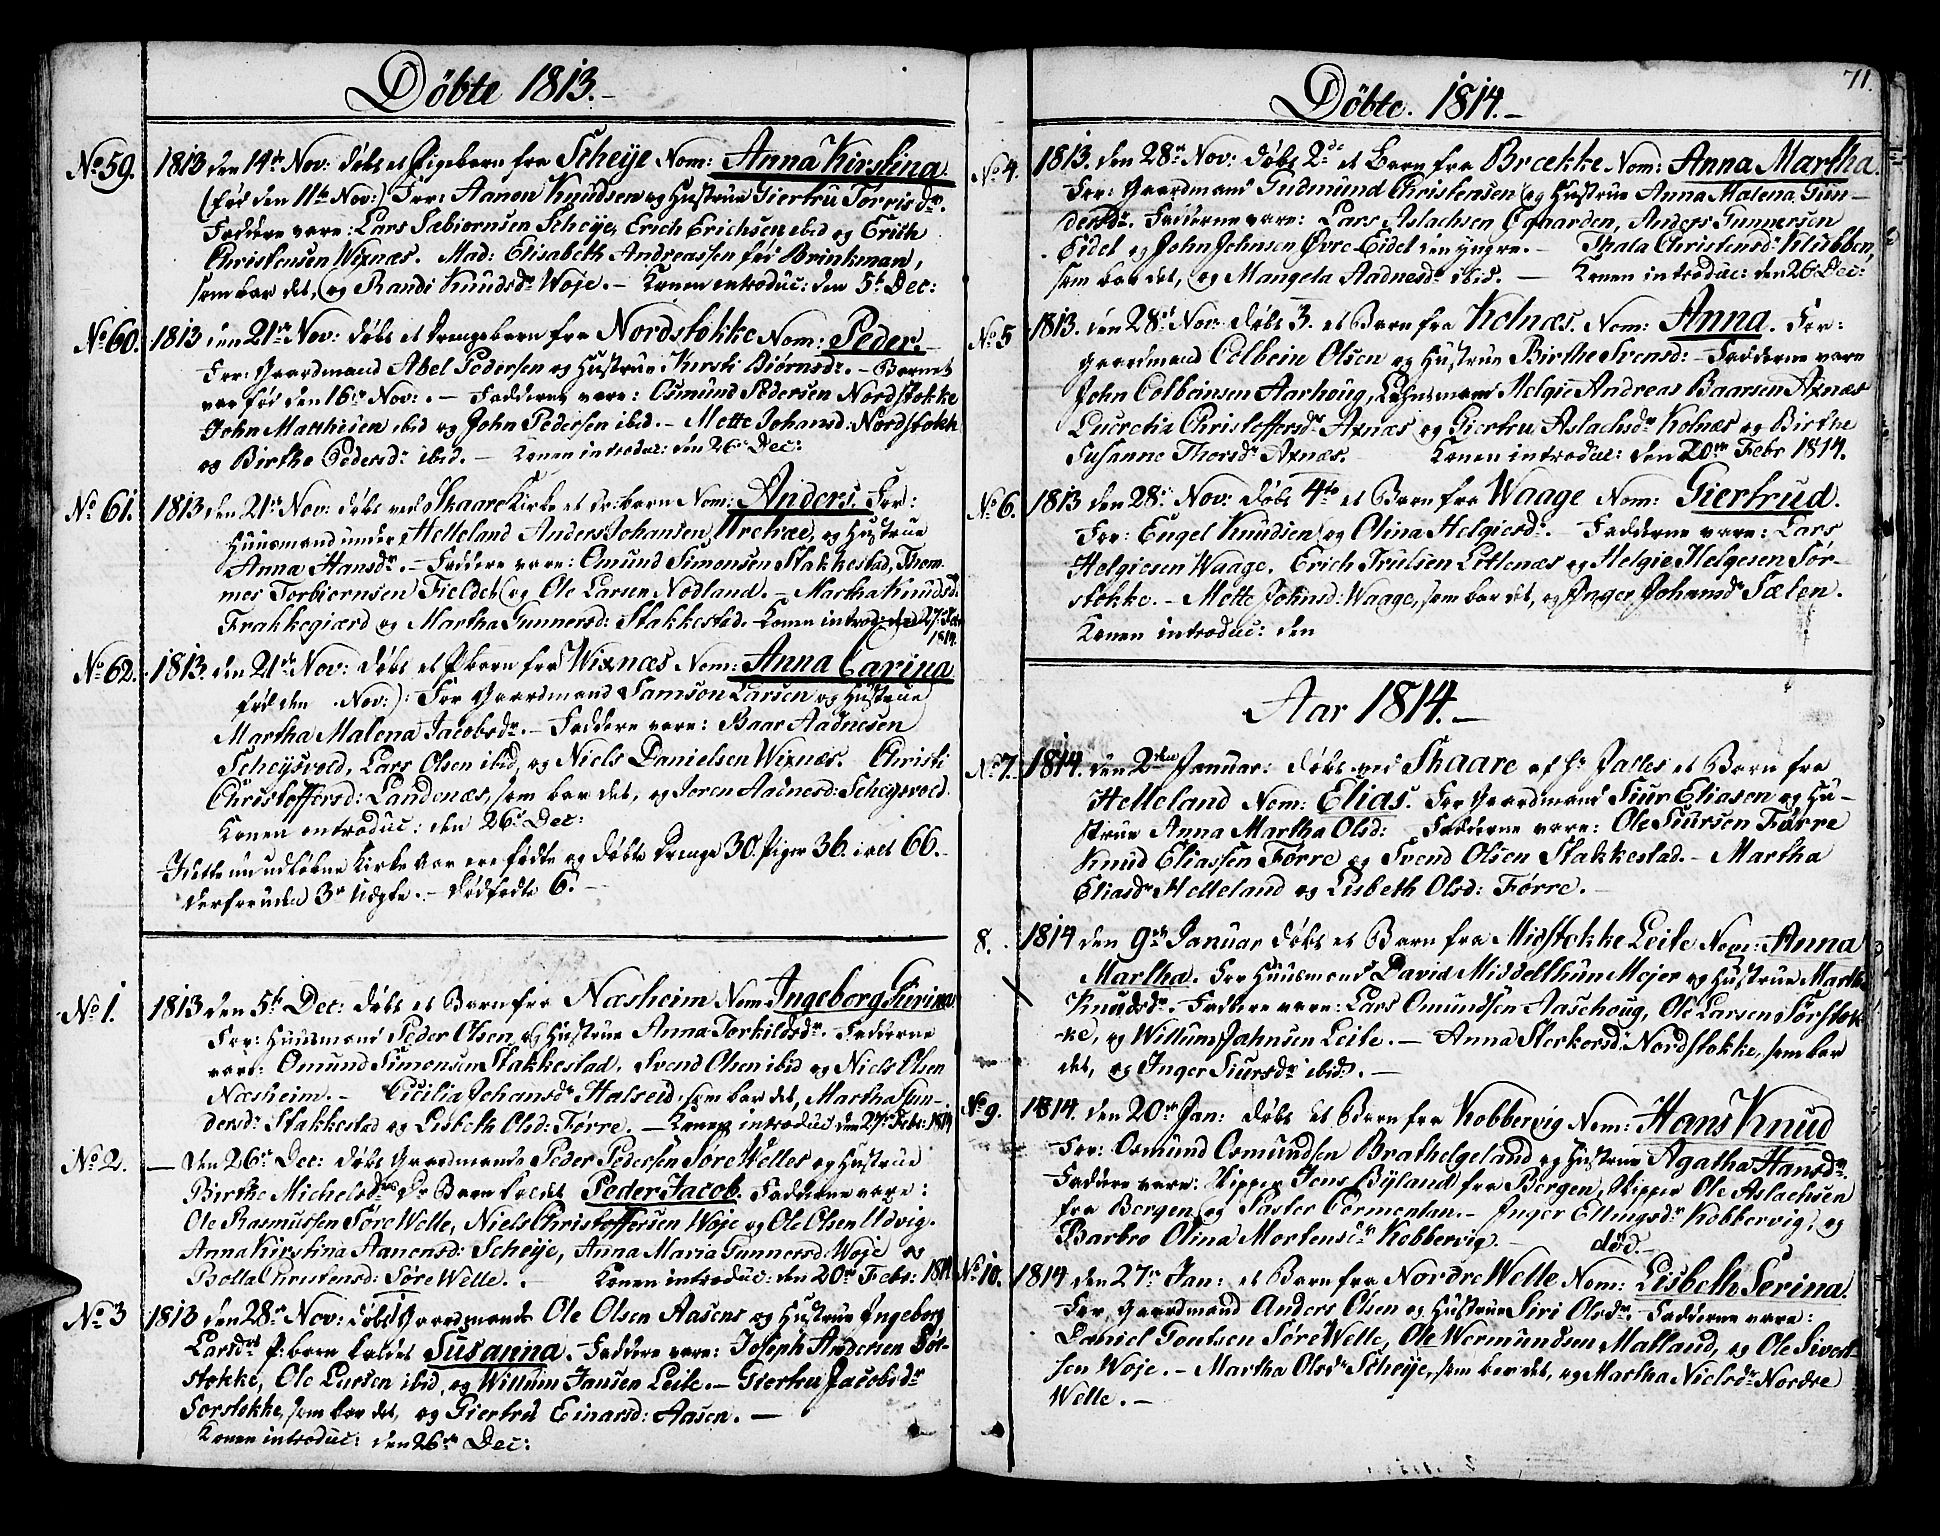 Døbte 1813.-
No 59. 1813 den 14de Nov: døbt et Pigebarn fra Scheije Nom: Anna Kirstina
(fød den 11te Nov:) For: Aanon Knudsen og Hustrue Giertru Torrisdr.
Faddere vare: Lars Sæbiørnsen Scheije, Erich Erichsen ibid og Erich
Christensen Wixnæs. Mad: Elisabeth Andreassen fød Brinkman,
som bar det, og Randi Knudsdr Woje. - Konen introduc: den 5te Dec:
No 60. 1813 den 21de Nov: døbt et Drengebarn fra Nordstokke Nom: Peder.
For: Gaardmand Abel Pedersen og Hustrue Kirsti Biørnsdr. - Barnet
var fød den 16de Nov: - Fadderne vare: Osmund Pedersen Nordstokke
John Matthisen ibid og John Pedersen ibid. - Mette Johansd: Nordstokk
og Birthe Pedersdr ibid. - Konen introduc: den 26de Dec:
No 61. 1813 den 21de Nov: døbt ved Skaare Kirke et dr: barn Nom: Anders. For:
Huusmand under Helleland Anders Johansen Urehæe, og Hustrue
Anna Hansdr. - Faddere vare: Omund Simonsen Stakkestad, Thom-
mes Torbiørnsen Fieldet og Ole Larsen Nodland. - Martha Knudsdr
Frakkegiærd og Martha Gunnersd: Stakkestad. Konen introd: den 27de Febr
1814.
No 62. 1813. den 21de Nov: døbt et P.barn fra Wixnæs Nom: Anna Carina
fød den Nov:): For Gaardmand Samson Larsen og Hustrue
Martha Malena Jacobsdr. - Faddere vare: Baar Aadnesen
Scheijsvold, Lars Olsen ibid, og Niels Danielsen Wixnæs. Christi
Christoffersd: Landenæs, som bar det, og Joren Aadnesd: Scheijsvold.
Konen introduc: den 26de Dec:
I dette nu udløbne Kirke Aar ere fødte og døbte Drenge 30. Piger 36. i alt 66.-
derforuden 3de Uægte. - Dødfødte 6. -
No 1. 1813 den 5te Dec: døbt et Barn fra Næsheim Nom: Ingeborg Serina
For: Huusmand Peder Olsen og Hustrue Anna Torkildsdr. Fadderne
vare: Omund Simonsen Stakkestad, Svend Olsen ibid og Niels Olsen
Næsheim. - Cicilia Johansdr Halseid, som bar det, Martha Gun-
dersd: Stakkestad og Lisbeth Olsd: Førre. - Konen introduc den 27de Febr: 1814
No 2. - den 26de Dec: døbt Gaardmands Peder Pedersen Søre Welles og Hustrue
Birthe Michelsdrs Dr Barn kaldet Peder Jacob. Fadderne vare:
Ole Rasmussen Søre Welle, Niels Christoffersen Woje og Ole Olsen Udvig.
Anna Kirstina Aanensd: Scheije, Anna Maria Gunnersd: Woje og
Bolla Christensd: Søre Welle. - Konen introduc: den 20de Febr: 1814
No 3 1813 den 28de Nov: døbt Gaardmands Ole Olsen Aasens og Hustrue Ingeborg
Larsdrs P: barn kaldet Susanna. Faddere vare: Joseph Andersen Sør-
stokke, Ole Larsen ibid, og Willum Jansen Leite. - Giertru Jacobsdr
Sørstokke, som bar det, og Giertru Einarsd: Aasen. -
Konen introduc: den 26de Dec:
71.
Døbte. 1814.-
No 4. 1813. den 28de Nov: døbt 2de et Barn fra Brække Nom: Anna Martha.
For: Gaardmand Gudmund Christensen og Hustrue Anna Malena Gun-
dersdr. Fadderne vare: Lars Aslachsen Opgaarden, Anders Gunnersen
Eidet og John Johnsen Øvre Eidet den yngre. - Thala Christensd: Klubben,
som bar det, og Mangela Aadnesdr ibid. - Konen introduc: den 26de Dec:
No 5 1813. den 28de Nov: døbt 3. et Barn fra Kolnæs. Nom: Anna. For:
Gaardmand Colbein Olsen og Hustrue Birthe Svensd: - Fadderne vare
John Colbeinsen Aarhoug, Lehnsmand Helgie Andreas Baarsen Axnæs
Lucretia Christoffersdr Axnæs og Giertru Aslachsdr Kolnæs og Birthe
Susanne Thorsdr Axnæs. Konen introduc: den 20de Febr 1814.
No 6. 1813 den 28de Nov: døbt 4de et Barn fra Waage Nom: Giertrud.
For: Engel Knudsen og Olina Helgiesdr. - Fadderne vare: Lars
Helgiesen Waage. Erich Trulsen Litlenæs og Helgie Helgesen Sør-
stokke. - Mette Johnsd: Waage, som bar det, og Inger Johansdr Sælen.
Konen introduc: den
Aar 1814.-
No 7. 1814. den 2den Januar: døbt ved Skaare af Hr Jalles et Barn fra
Helleland Nom: Elias. For Gaardmand Siur Eliasen og Hu-
strue Anna Martha Olsd: Fadderne vare: Ole Siursen Førre
Knud Eliassen Førre og Svend Olsen Stakkestad. - Martha
Eliasdr Helleland og Lisbeth Olsd: Førre. -
8. 1814 den 9de Januar døbt et Barn fra Midstokke Leite Nom: Anna
Martha. For Huusmand David Middelthun Mejer og Hustrue Marth
Knudsdr. Faddere vare: Lars Omundsen Aaschoug, Ole Larsen Sørstok-
ke, og Willum Jahnsen Leite. - Anna Sterkersd: Nordstokke, som bar
det, og Inger Siursdr ibid. -
No 9. 1814. den 20de Jan: døbt et Barn fra Kobbervig Nom: Hans Knud
For: Osmund Osmundsen Brathelgeland og Hustrue Agatha Hansdr.
Faddere vare: Skipper Jens Bÿland fra Bergen, Skipper Ole Aslachsen
fra Bergen og Paster Cormontan. - Inger Ellingsdr Kobbervig, og
Barbro Olina Mortensdr Kobbervig. - død.-
No 10. 1814 den 27de Jan: et Barn fra Nordre Welle Nom: Lisbeth Serina.
For Gaardmand Anders Olsen og Hustrue Siri Olsdr. Fadderne vare:
Daniel Toulsen Søre Welle, Ole Wermundsen Matland, og Ole Sivert-
sen Woje. - Martha Olsdr Scheije, som bar det, og Martha Nielsdr Nordre
Welle. -